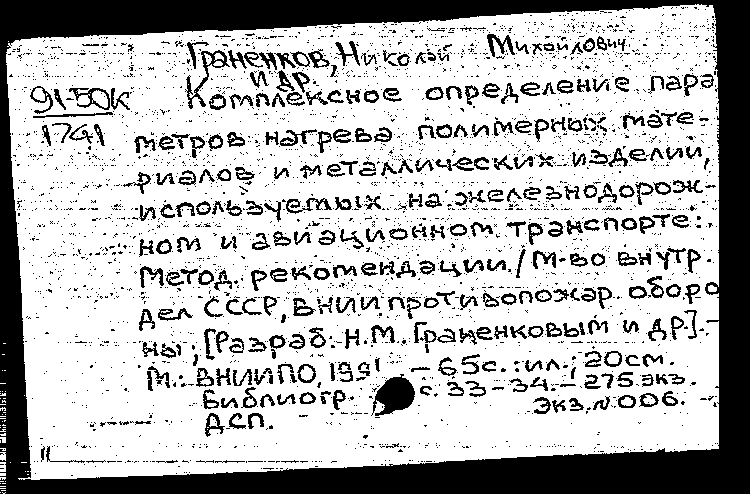 Граненков, Николай Михайлович
и др.
91-50К Комплексное определение пара
1741 метров нагрева полимерных мате-
риалов и металлических изделий,
используемых на железнодорож-
ном и авиационном транспорте:
Метод. рекомендации / М-во внутр.
дел СССР, ВНИИ противопожар. оборо
ны; [Разраб. Н.М. Граненковым и др.].-
М.: ВНИИПО, 1991 - 65с.: ил.; 20см.
Библиогр. с. 33-34. - 275 экз.
ДСП. Экз. № 006.